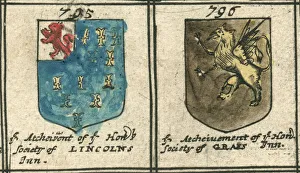 795
796
yͤ Atcheiſont of yͤ Honͩˡ
Society of LINCOLNS
Inn.
yͤ Atcheivement of yͤ Honͩ
Society of GRAES Inn.